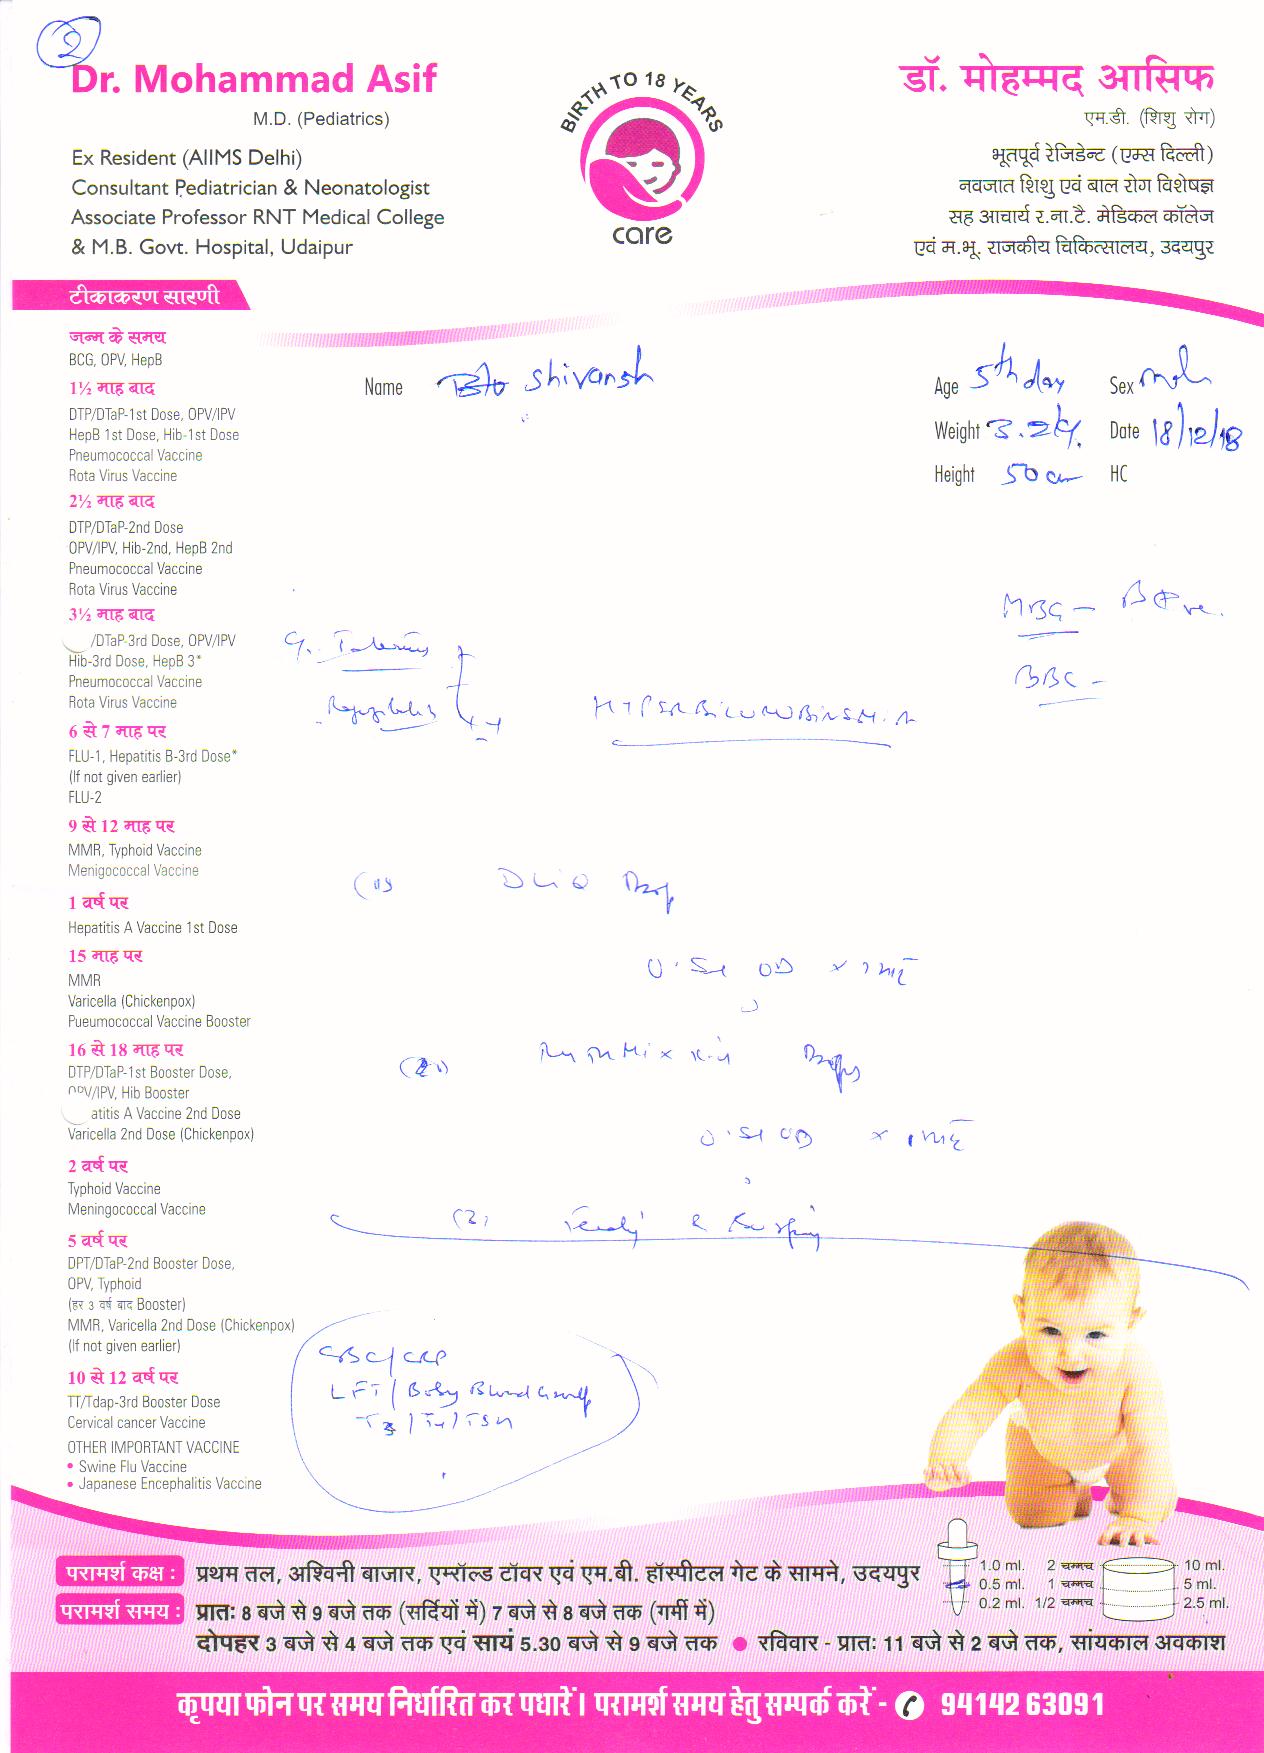 2
Dr. Mohammad Asif
M.D. (Pediatrics)
Ex Resident (AIIMS Delhi)
Consultant Pediatrician & Neonatologist
Associate Professor RNT Medical College
& M.B. Govt. Hospital, Udaipur
BIRTH TO 18 YEARS
care
डॉ. मोहम्मद आसिफ
एम.डी. (शिशु रोग)
भूतपूर्व रेजिडेन्ट (एम्स दिल्ली)
नवजात शिशु एवं बाल रोग विशेषज्ञ
सह आचार्य र.ना.टै. मेडिकल कॉलेज
एवं म.भू. राजकीय चिकित्सालय, उदयपुर
टीकाकरण सारणी
जन्म के समय
BCG, OPV, HepB
1½ माह बाद
DTP/DTaP-1st Dose, OPV/IPV
HepB 1st Dose, Hib-1st Dose
Pneumococcal Vaccine
Rota Virus Vaccine
2½ माह बाद
DTP/DTaP-2nd Dose
OPV/IPV, Hib-2nd, HepB 2nd
Pneumococcal Vaccine
Rota Virus Vaccine
3½ माह बाद
/DTaP-3rd Dose, OPV/IPV
Hib-3rd Dose, HepB 3*
Pneumococcal Vaccine
Rota Virus Vaccine
6 से 7 माह पर
FLU-1, Hepatitis B-3rd Dose*
(If not given earlier)
FLU-2
9 से 12 माह पर
MMR, Typhoid Vaccine
Menigococcal Vaccine
1 वर्ष पर
Hepatitis A Vaccine 1st Dose
15 माह पर
MMR
Varicella (Chickenpox)
Pueumococcal Vaccine Booster
16 से 18 माह पर
DTP/DTaP-1st Booster Dose,
OPV/IPV, Hib Booster
atitis A Vaccine 2nd Dose
Varicella 2nd Dose (Chickenpox)
2 वर्ष पर
Typhoid Vaccine
Meningococcal Vaccine
5 वर्ष पर
DPT/DTaP-2nd Booster Dose,
OPV, Typhoid
(हर 3 वर्ष बाद Booster)
MMR, Varicella 2nd Dose (Chickenpox)
(If not given earlier)
10 से 12 वर्ष पर
TT/Tdap-3rd Booster Dose
Cervical cancer Vaccine
OTHER IMPORTANT VACCINE
• Swine Flu Vaccine
• Japanese Encephalitis Vaccine
Name B/o Shivansh
Age 5th day Sex
Weight 3.2 kg. Date 18/12/18
Height 50 cm HC
MBG - B ve.
BBG -
HYPERBILIRUBINEMIA
(1) Drop
OD x 1
(2) Drops
OD x 1
(3)
CBC/CRP
LFT/Baby Blood Group
T3/T4/TSH
1.0 ml. 2 चम्मच 10 ml.
0.5 ml. 1 चम्मच 5 ml.
0.2 ml. 1/2 चम्मच 2.5 ml.
परामर्श कक्ष : प्रथम तल, अश्विनी बाजार, एमॉल्ड टॉवर एवं एम.बी. हॉस्पीटल गेट के सामने, उदयपुर
परामर्श समय : प्रातः 8 बजे से 9 बजे तक (सर्दियों में) 7 बजे से 8 बजे तक (गर्मी में)
दोपहर 3 बजे से 4 बजे तक एवं सायं 5.30 बजे से 9 बजे तक ● रविवार - प्रातः 11 बजे से 2 बजे तक, सांयकाल अवकाश
कृपया फोन पर समय निर्धारित कर पधारें। परामर्श समय हेतु सम्पर्क करें - 94142 63091